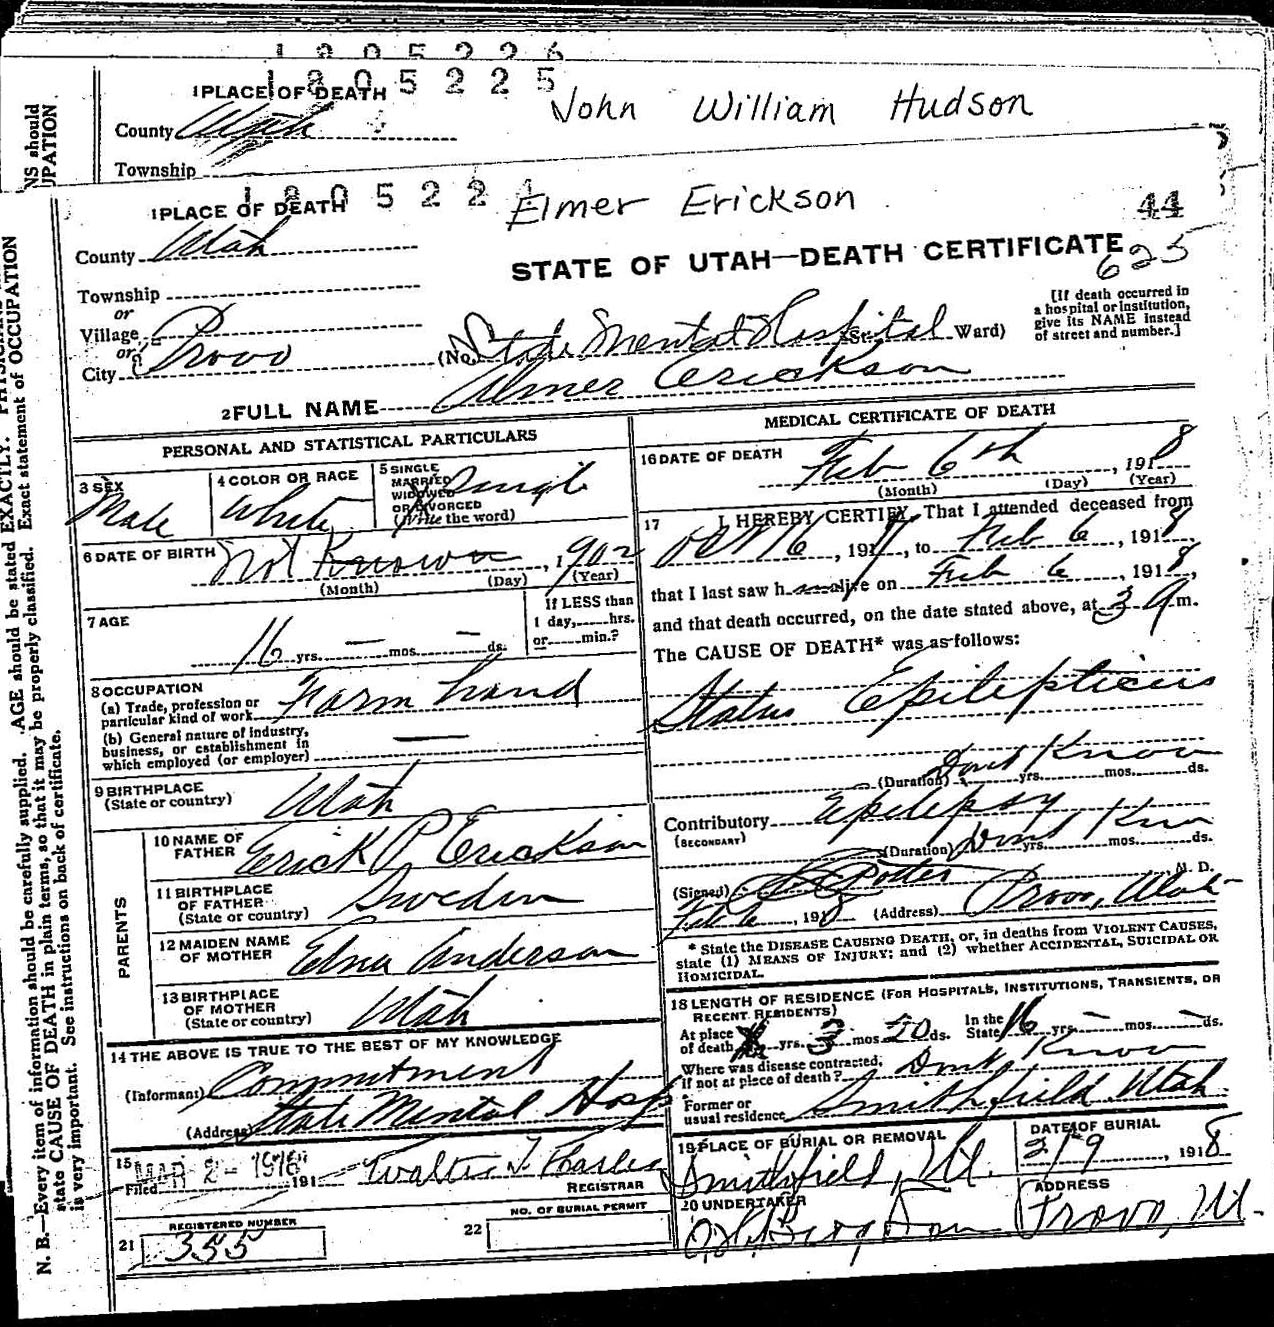 1805226
1805225
John William Hudson
1 PLACE OF DEATH
County Utah
Township
NS should
UPATION
1805224
Elmer Erickson
44
1 PLACE OF DEATH
County Utah
STATE OF UTAH—DEATH CERTIFICATE
625
Township
or
Village
or
City Provo
(No. State Mental Hospital St. Ward)
[If death occurred in
a hospital or institution,
give its NAME instead
of street and number.]
2 FULL NAME Elmer Erickson
PERSONAL AND STATISTICAL PARTICULARS
3 SEX
Male
4 COLOR OR RACE
White
5 SINGLE
MARRIED
WIDOWED
OR DIVORCED
(Write the word)
Single
6 DATE OF BIRTH Not Known, 1902
(Month) (Day) (Year)
7 AGE
16 yrs. — mos. — ds.
If LESS than
1 day, hrs.
or min.?
8 OCCUPATION
(a) Trade, profession or
particular kind of work Farm hand
(b) General nature of industry,
business, or establishment in
which employed (or employer) —
9 BIRTHPLACE
(State or country) Utah
PARENTS
10 NAME OF
FATHER Erick P Erickson
11 BIRTHPLACE
OF FATHER
(State or country) Sweden
12 MAIDEN NAME
OF MOTHER Elna Anderson
13 BIRTHPLACE
OF MOTHER
(State or country) Utah
14 THE ABOVE IS TRUE TO THE BEST OF MY KNOWLEDGE
(Informant) Commitment
(Address) State Mental Hosp
15
Filed MAR 2 - 1918 191
Walter T
REGISTRAR
REGISTERED NUMBER
21 355
NO. OF BURIAL PERMIT
22
MEDICAL CERTIFICATE OF DEATH
16 DATE OF DEATH
Feb 6th, 1918
(Month) (Day) (Year)
17 I HEREBY CERTIFY, That I attended deceased from
Oct 16, 1917, to Feb 6, 1918,
that I last saw h alive on Feb 6, 1918,
and that death occurred, on the date stated above, at 3 A m.
The CAUSE OF DEATH* was as follows:
Status Epilepticus
(Duration) Dont Know yrs. mos. ds.
Contributory Epilepsy
(SECONDARY)
(Duration) Dont Know yrs. mos. ds.
(Signed) Potter M. D.
Feb 6, 1918 (Address) Provo, Utah
* State the DISEASE CAUSING DEATH, or, in deaths from VIOLENT CAUSES,
state (1) MEANS OF INJURY; and (2) whether ACCIDENTAL, SUICIDAL OR
HOMICIDAL.
18 LENGTH OF RESIDENCE (FOR HOSPITALS, INSTITUTIONS, TRANSIENTS, OR
RECENT RESIDENTS)
At place
of death yrs. 3 mos. 20 ds. In the
State 16 yrs. — mos. — ds.
Where was disease contracted,
if not at place of death? Dont Know
Former or
usual residence Smithfield Utah.
19 PLACE OF BURIAL OR REMOVAL
Smithfield, Ut.
DATE OF BURIAL
2/9, 1918
20 UNDERTAKER
ADDRESS
Provo, Ut.
N. B.—Every item of information should be carefully supplied. AGE should be stated EXACTLY. PHYSICIANS
state CAUSE OF DEATH in plain terms, so that it may be properly classified. Exact statement of OCCUPATION
is very important. See instructions on back of certificate.